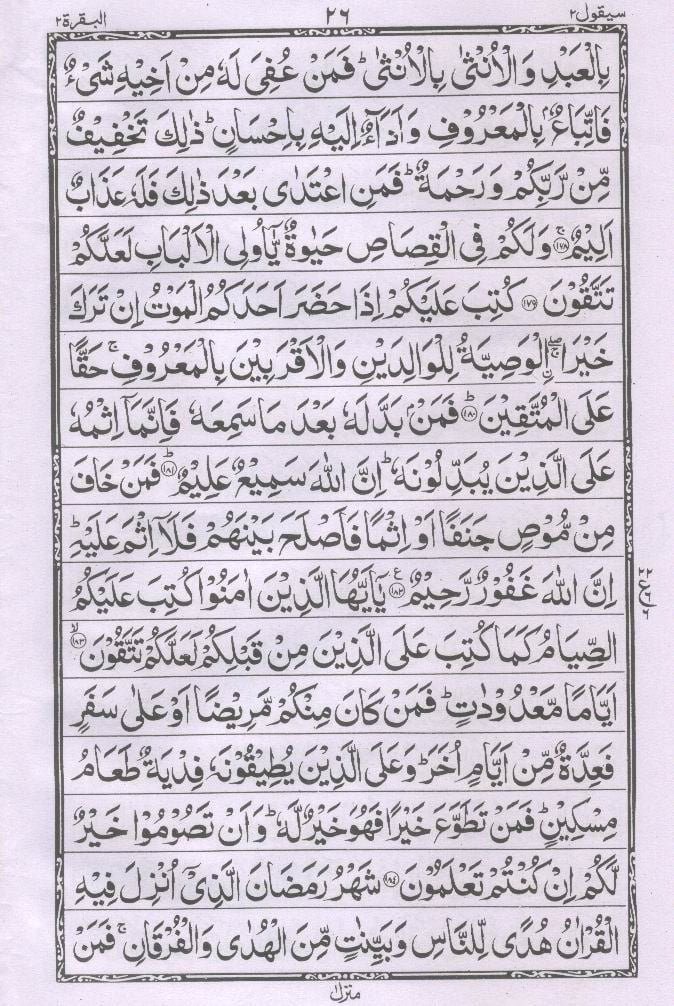 سيقول٢ ٢٦ البقرة٢
بِالْعَبْدِ وَالْاُنْثٰى بِالْاُنْثٰىؕ فَمَنْ عُفِىَ لَهٗ مِنْ اَخِيْهِ شَىْءٌ
فَاتِّبَاعٌۢ بِالْمَعْرُوْفِ وَاَدَآءٌ اِلَيْهِ بِاِحْسَانٍؕ ذٰلِكَ تَخْفِيْفٌ
مِّنْ رَّبِّكُمْ وَرَحْمَةٌؕ فَمَنِ اعْتَدٰى بَعْدَ ذٰلِكَ فَلَهٗ عَذَابٌ
اَلِيْمٌۚ﴿١٧٨﴾ وَلَكُمْ فِى الْقِصَاصِ حَيٰوةٌ يّٰٓاُولِى الْاَلْبَابِ لَعَلَّكُمْ
تَتَّقُوْنَ﴿١٧٩﴾ كُتِبَ عَلَيْكُمْ اِذَا حَضَرَ اَحَدَكُمُ الْمَوْتُ اِنْ تَرَكَ
خَيْرَاۖۚ اۨلْوَصِيَّةُ لِلْوَالِدَيْنِ وَالْاَقْرَبِيْنَ بِالْمَعْرُوْفِۚ حَقًّا
عَلَى الْمُتَّقِيْنَؕ﴿١٨٠﴾ فَمَنْۢ بَدَّلَهٗ بَعْدَ مَا سَمِعَهٗ فَاِنَّمَاۤ اِثْمُهٗ
عَلَى الَّذِيْنَ يُبَدِّلُوْنَهٗؕ اِنَّ اللّٰهَ سَمِيْعٌ عَلِيْمٌؕ﴿١٨١﴾ فَمَنْ خَافَ
مِنْ مُّوْصٍ جَنَفًا اَوْ اِثْمًا فَاَصْلَحَ بَيْنَهُمْ فَلَاۤ اِثْمَ عَلَيْهِؕ
اِنَّ اللّٰهَ غَفُوْرٌ رَّحِيْمٌ﴿١٨٢﴾ۧ يٰٓاَيُّهَا الَّذِيْنَ اٰمَنُوْا كُتِبَ عَلَيْكُمُ
الصِّيَامُ كَمَا كُتِبَ عَلَى الَّذِيْنَ مِنْ قَبْلِكُمْ لَعَلَّكُمْ تَتَّقُوْنَۙ﴿١٨٣﴾
اَيَّامًا مَّعْدُوْدٰتٍؕ فَمَنْ كَانَ مِنْكُمْ مَّرِيْضًا اَوْ عَلٰى سَفَرٍ
فَعِدَّةٌ مِّنْ اَيَّامٍ اُخَرَؕ وَعَلَى الَّذِيْنَ يُطِيْقُوْنَهٗ فِدْيَةٌ طَعَامُ
مِسْكِيْنٍؕ فَمَنْ تَطَوَّعَ خَيْرًا فَهُوَ خَيْرٌ لَّهٗؕ وَاَنْ تَصُوْمُوْا خَيْرٌ
لَّكُمْ اِنْ كُنْتُمْ تَعْلَمُوْنَ﴿١٨٤﴾ شَهْرُ رَمَضَانَ الَّذِىْۤ اُنْزِلَ فِيْهِ
الْقُرْاٰنُ هُدًى لِّلنَّاسِ وَبَيِّنٰتٍ مِّنَ الْهُدٰى وَالْفُرْقَانِۚ فَمَنْ
منزل١